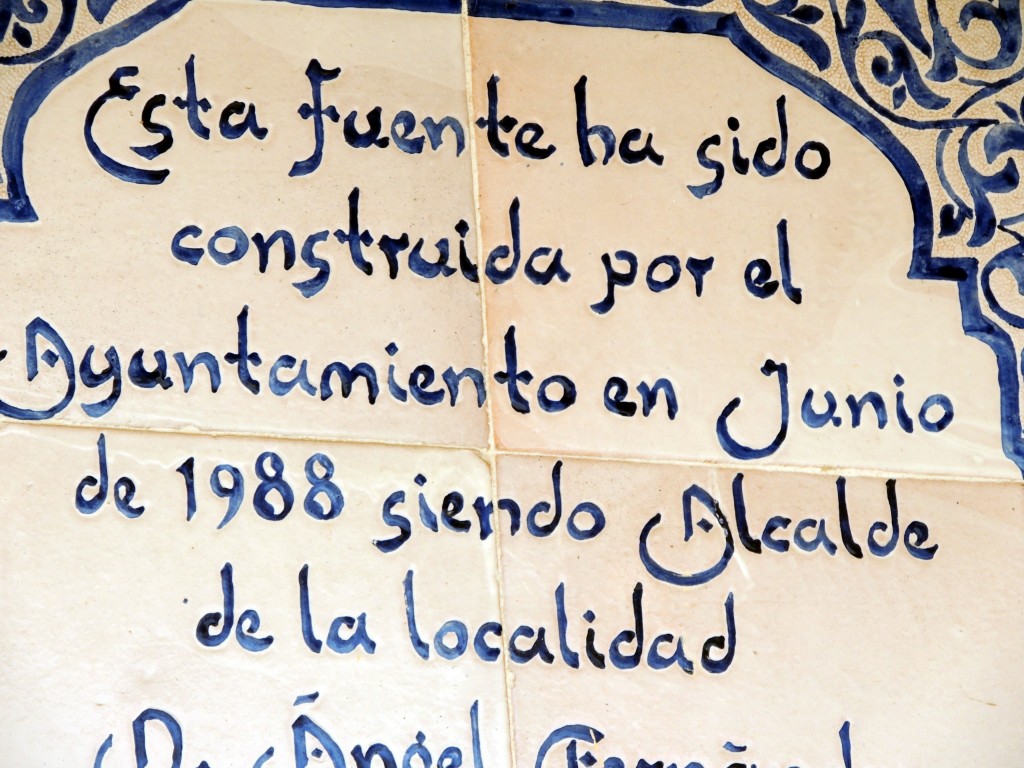 Esta Fuente ha sido
construida por el
Ayuntamiento en Junio
de 1988 siendo Alcalde
de la localidad
D. Ángel